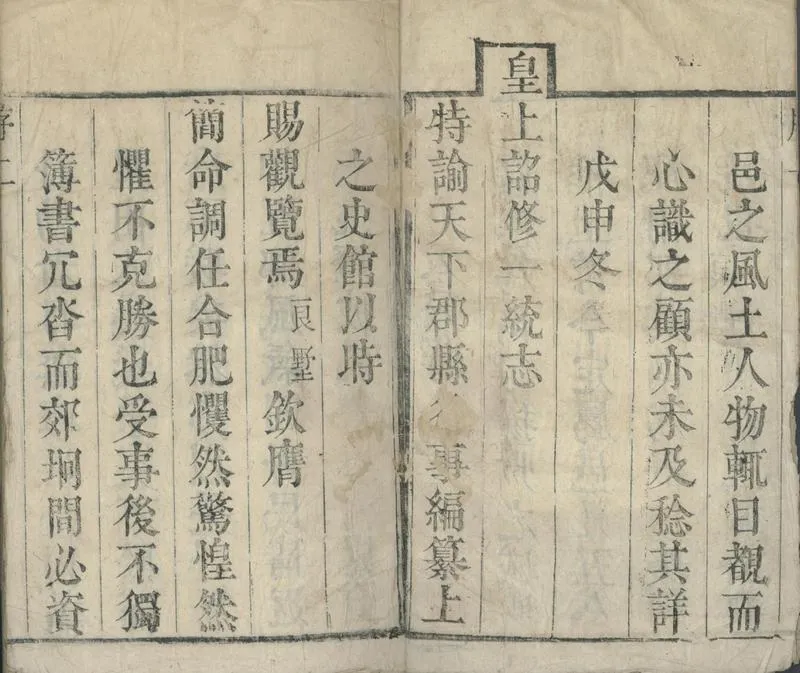 邑之風土人物輒目覩而
心識之顧亦未及稔其詳
戊申冬
皇上詔修一統志
特諭天下郡縣事編纂上
之史館以時
賜觀覽焉良墅欽膺
簡命調任合肥戄然驚惶然
懼不克勝也受事後不獨
簿書冗沓而郊坰間必資